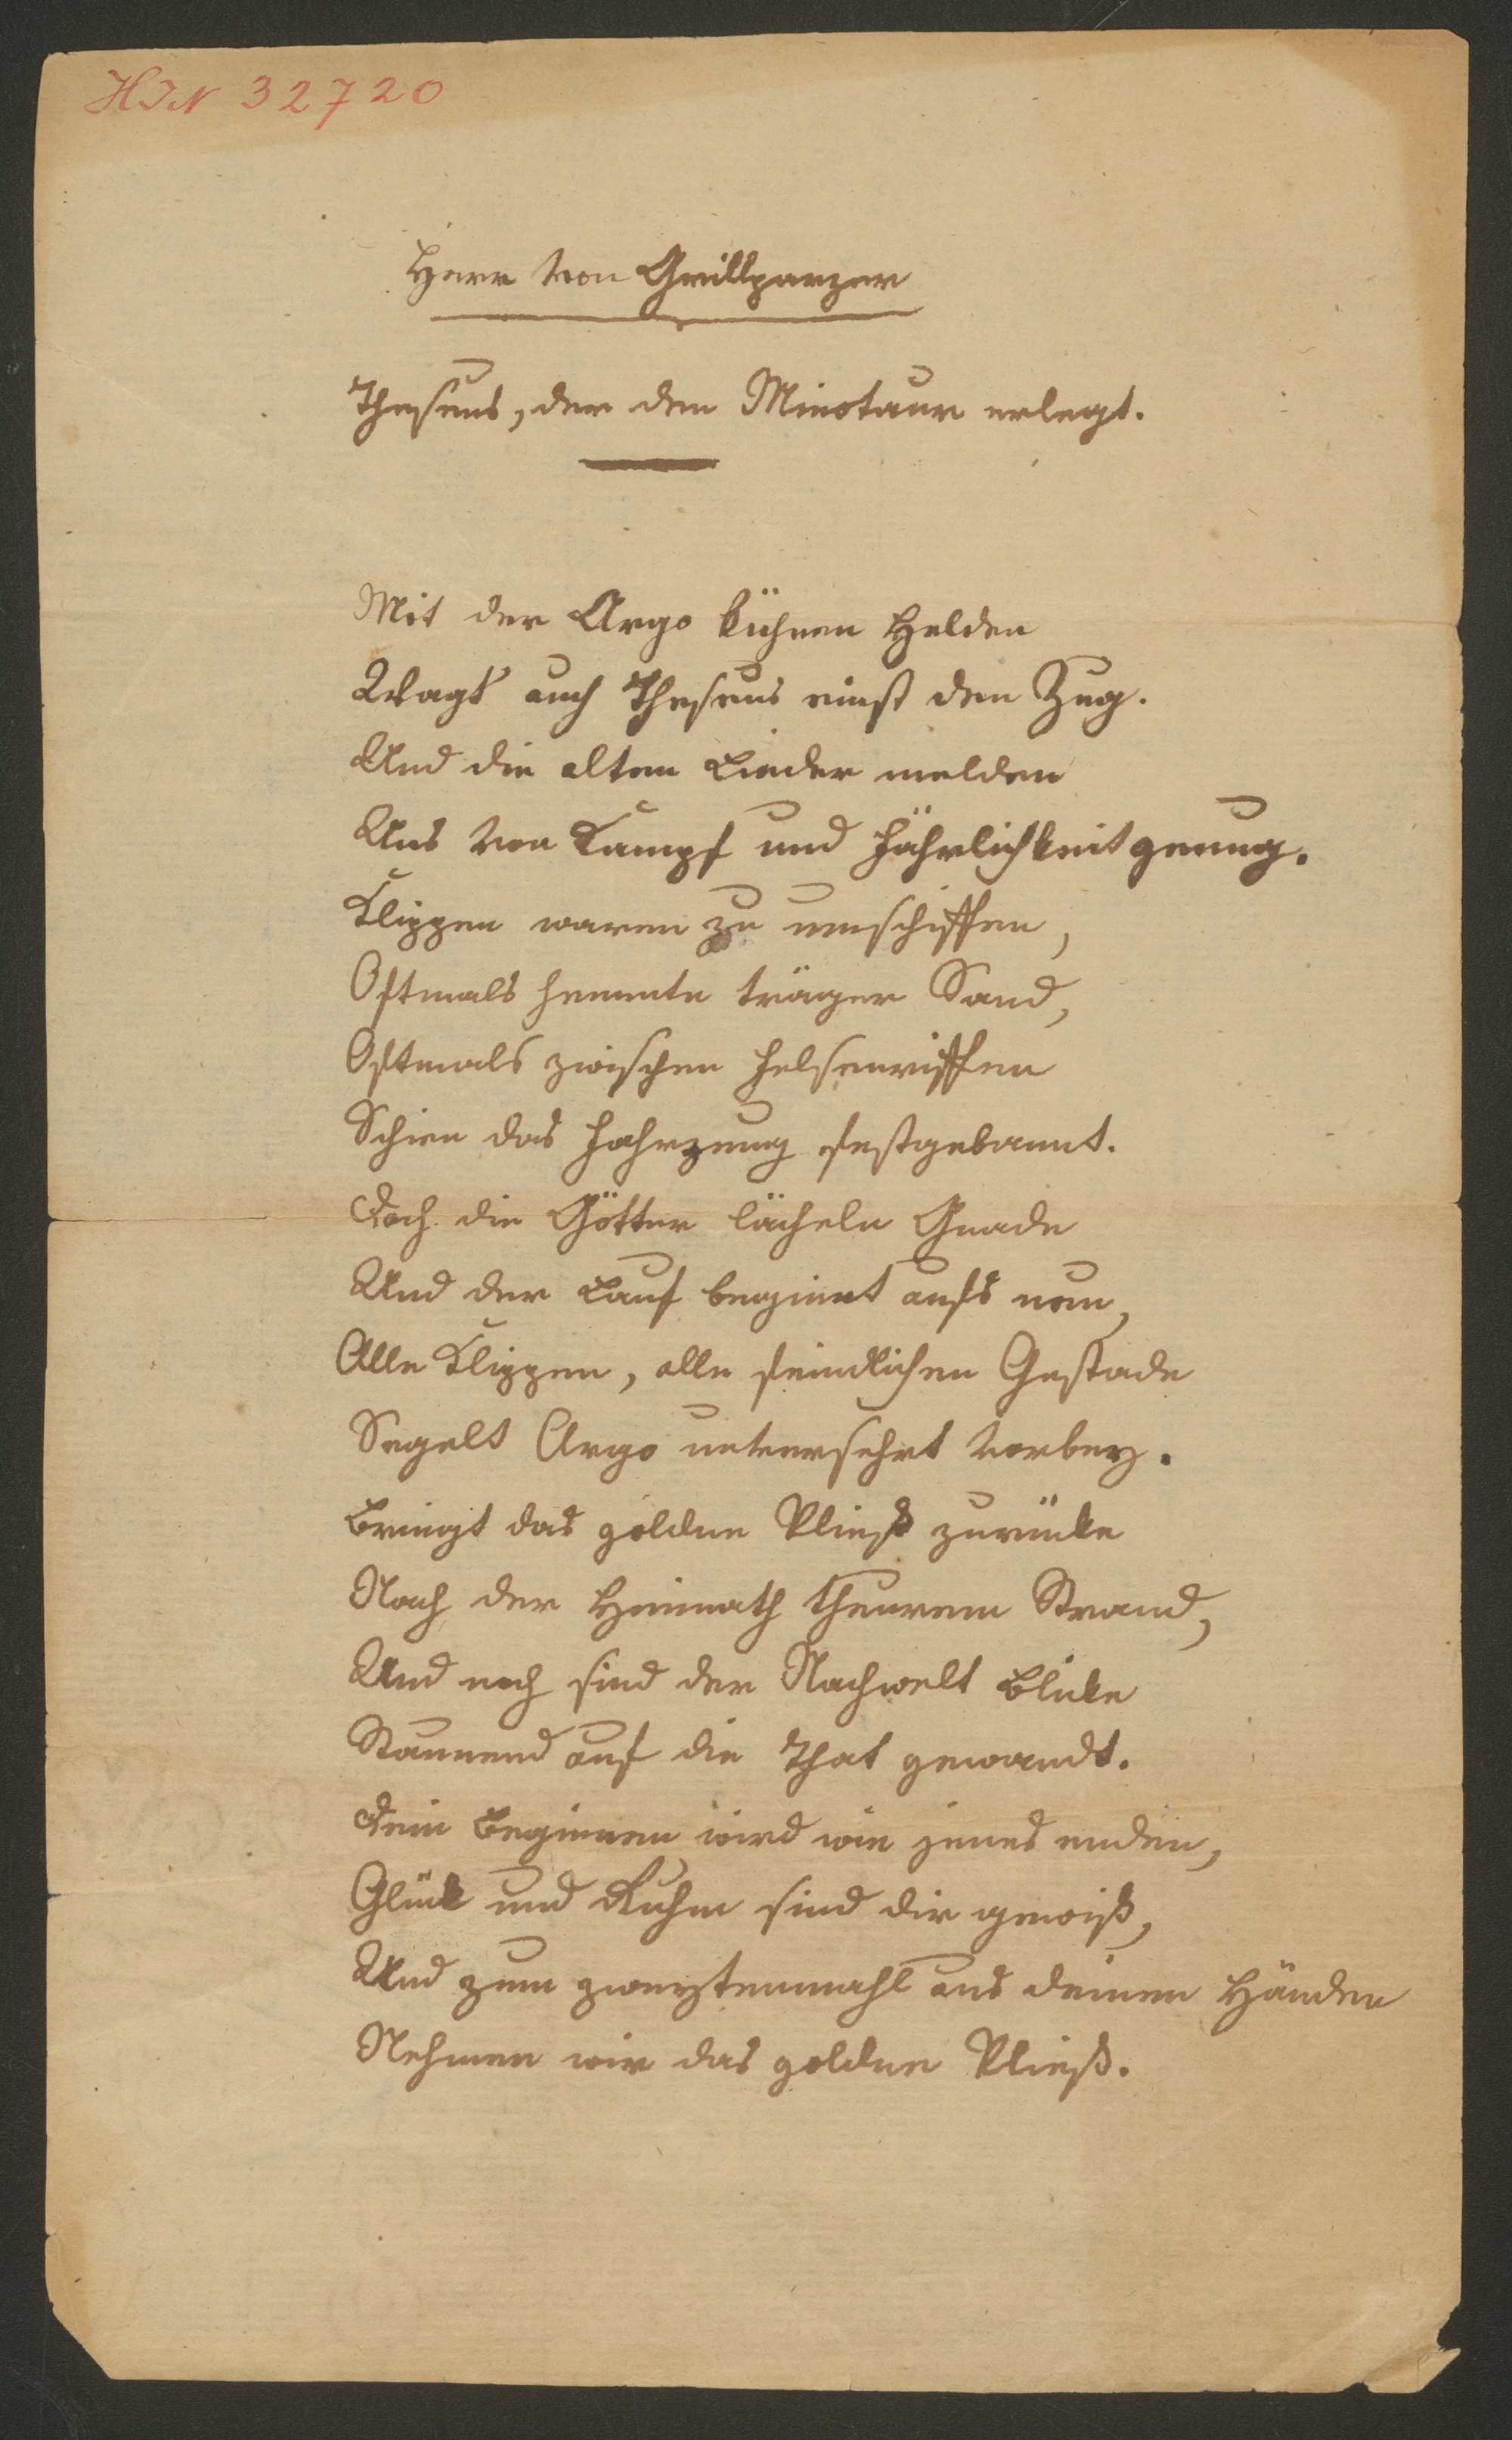 HIN 32720
Herr von Grillparzer
Theseus, der den Minotaur erlegt.
Mit der Argo kühnen Helden
Wagt' auch Theseus einst den Zug.
Und die alten Lieder melden
Uns von Kampf und Fährlichkeit genug.
Klippen waren zu umschiffen,
Oftmals hemmte träger Sand,
Oftmals zwischen Felsenriffen
Schien das Fahrzeug festgebannt.
Doch die Götter lächeln Gnade
Und der Lauf beginnt aufs neu,
Alle Klippen, alle feindlichen Gestade
Segelt Argo unversehrt vorbey.
Bringt das goldne Vließ zurücke
Nach der Heimath theurem Strand,
Und noch sind der Nachwelt Blicke
Staunend auf die That gewandt.
Dein Beginnen wird wie jenes enden,
Glück und Ruhm sind dir gewiß,
Und zum zweytenmahl aus deinen Händen
Nehmen wir das goldne Vließ.